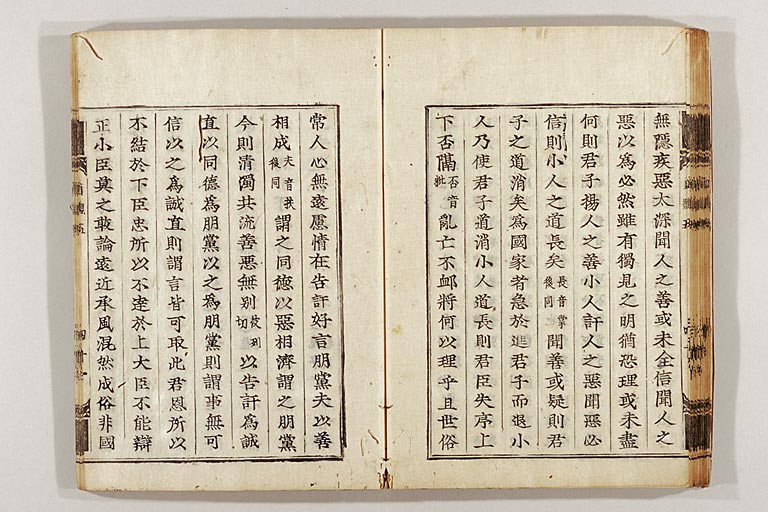 無隱疾惡太深聞人之善或未全信聞人之
惡以爲必然雖有獨見之明猶恐理或未盡
何則君子揚人之善小人訐人之惡聞惡必
信則小人之道長矣長音掌後同聞善或疑則君
子之道消矣爲國家者急於進君子而退小
人乃使君子道消小人道長則君臣失序上
下否隔否音痞亂亡不卹將何以理乎且世俗
常人心無遠慮情在告訐好言朋黨夫以善
相成夫音扶後同謂之同德以惡相濟謂之朋黨
今則清濁共流善惡無別彼列切以告訐爲誠
直以同德爲朋黨以之爲朋黨則謂事無可
信以之爲誠直則謂言皆可取此君恩所以
不結於下臣忠所以不達於上大臣不能辯
正小臣莫之敢論遠近承風混然成俗非國